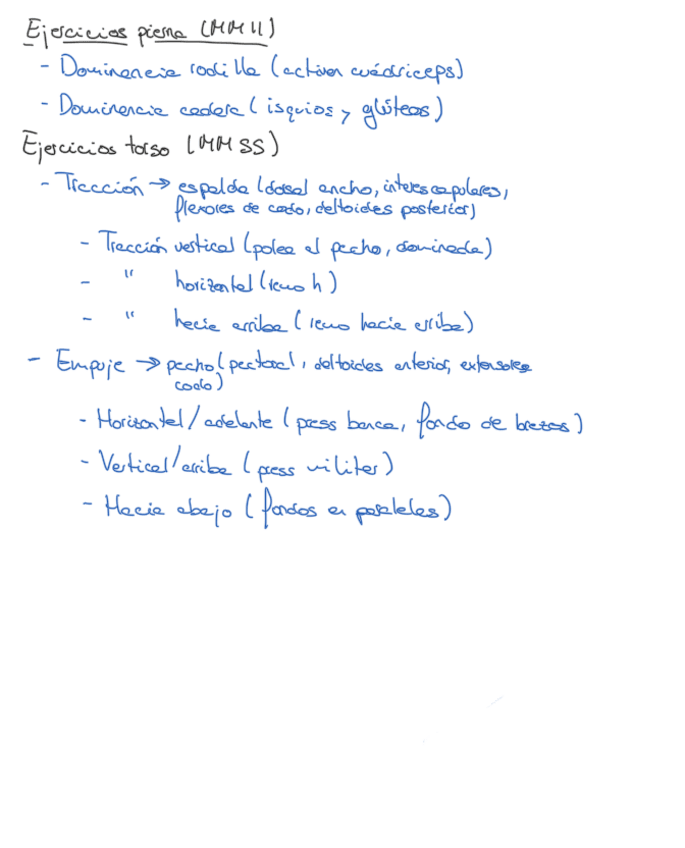 Ejercicios pierna (MMII)
- Dominancia rodilla (activan cuádriceps)
- Dominancia cadera (isquios y glúteos)
Ejercicios torso (MMSS)
- Tracción → espalda (dosal ancho, interescapulares,
flexores de codo, deltoides posterior)
- Tracción vertical (polea al pecho, dominada)
- " horizontal (remo h)
- " hacia arriba (remo hacia arriba)
- Empuje → pecho (pectoral, deltoides anterior, extensores
codo)
- Horizontal/adelante (press banca, fondo de brazos)
- Vertical/arriba (press militar)
- Hacia abajo (fondos en paralelas)